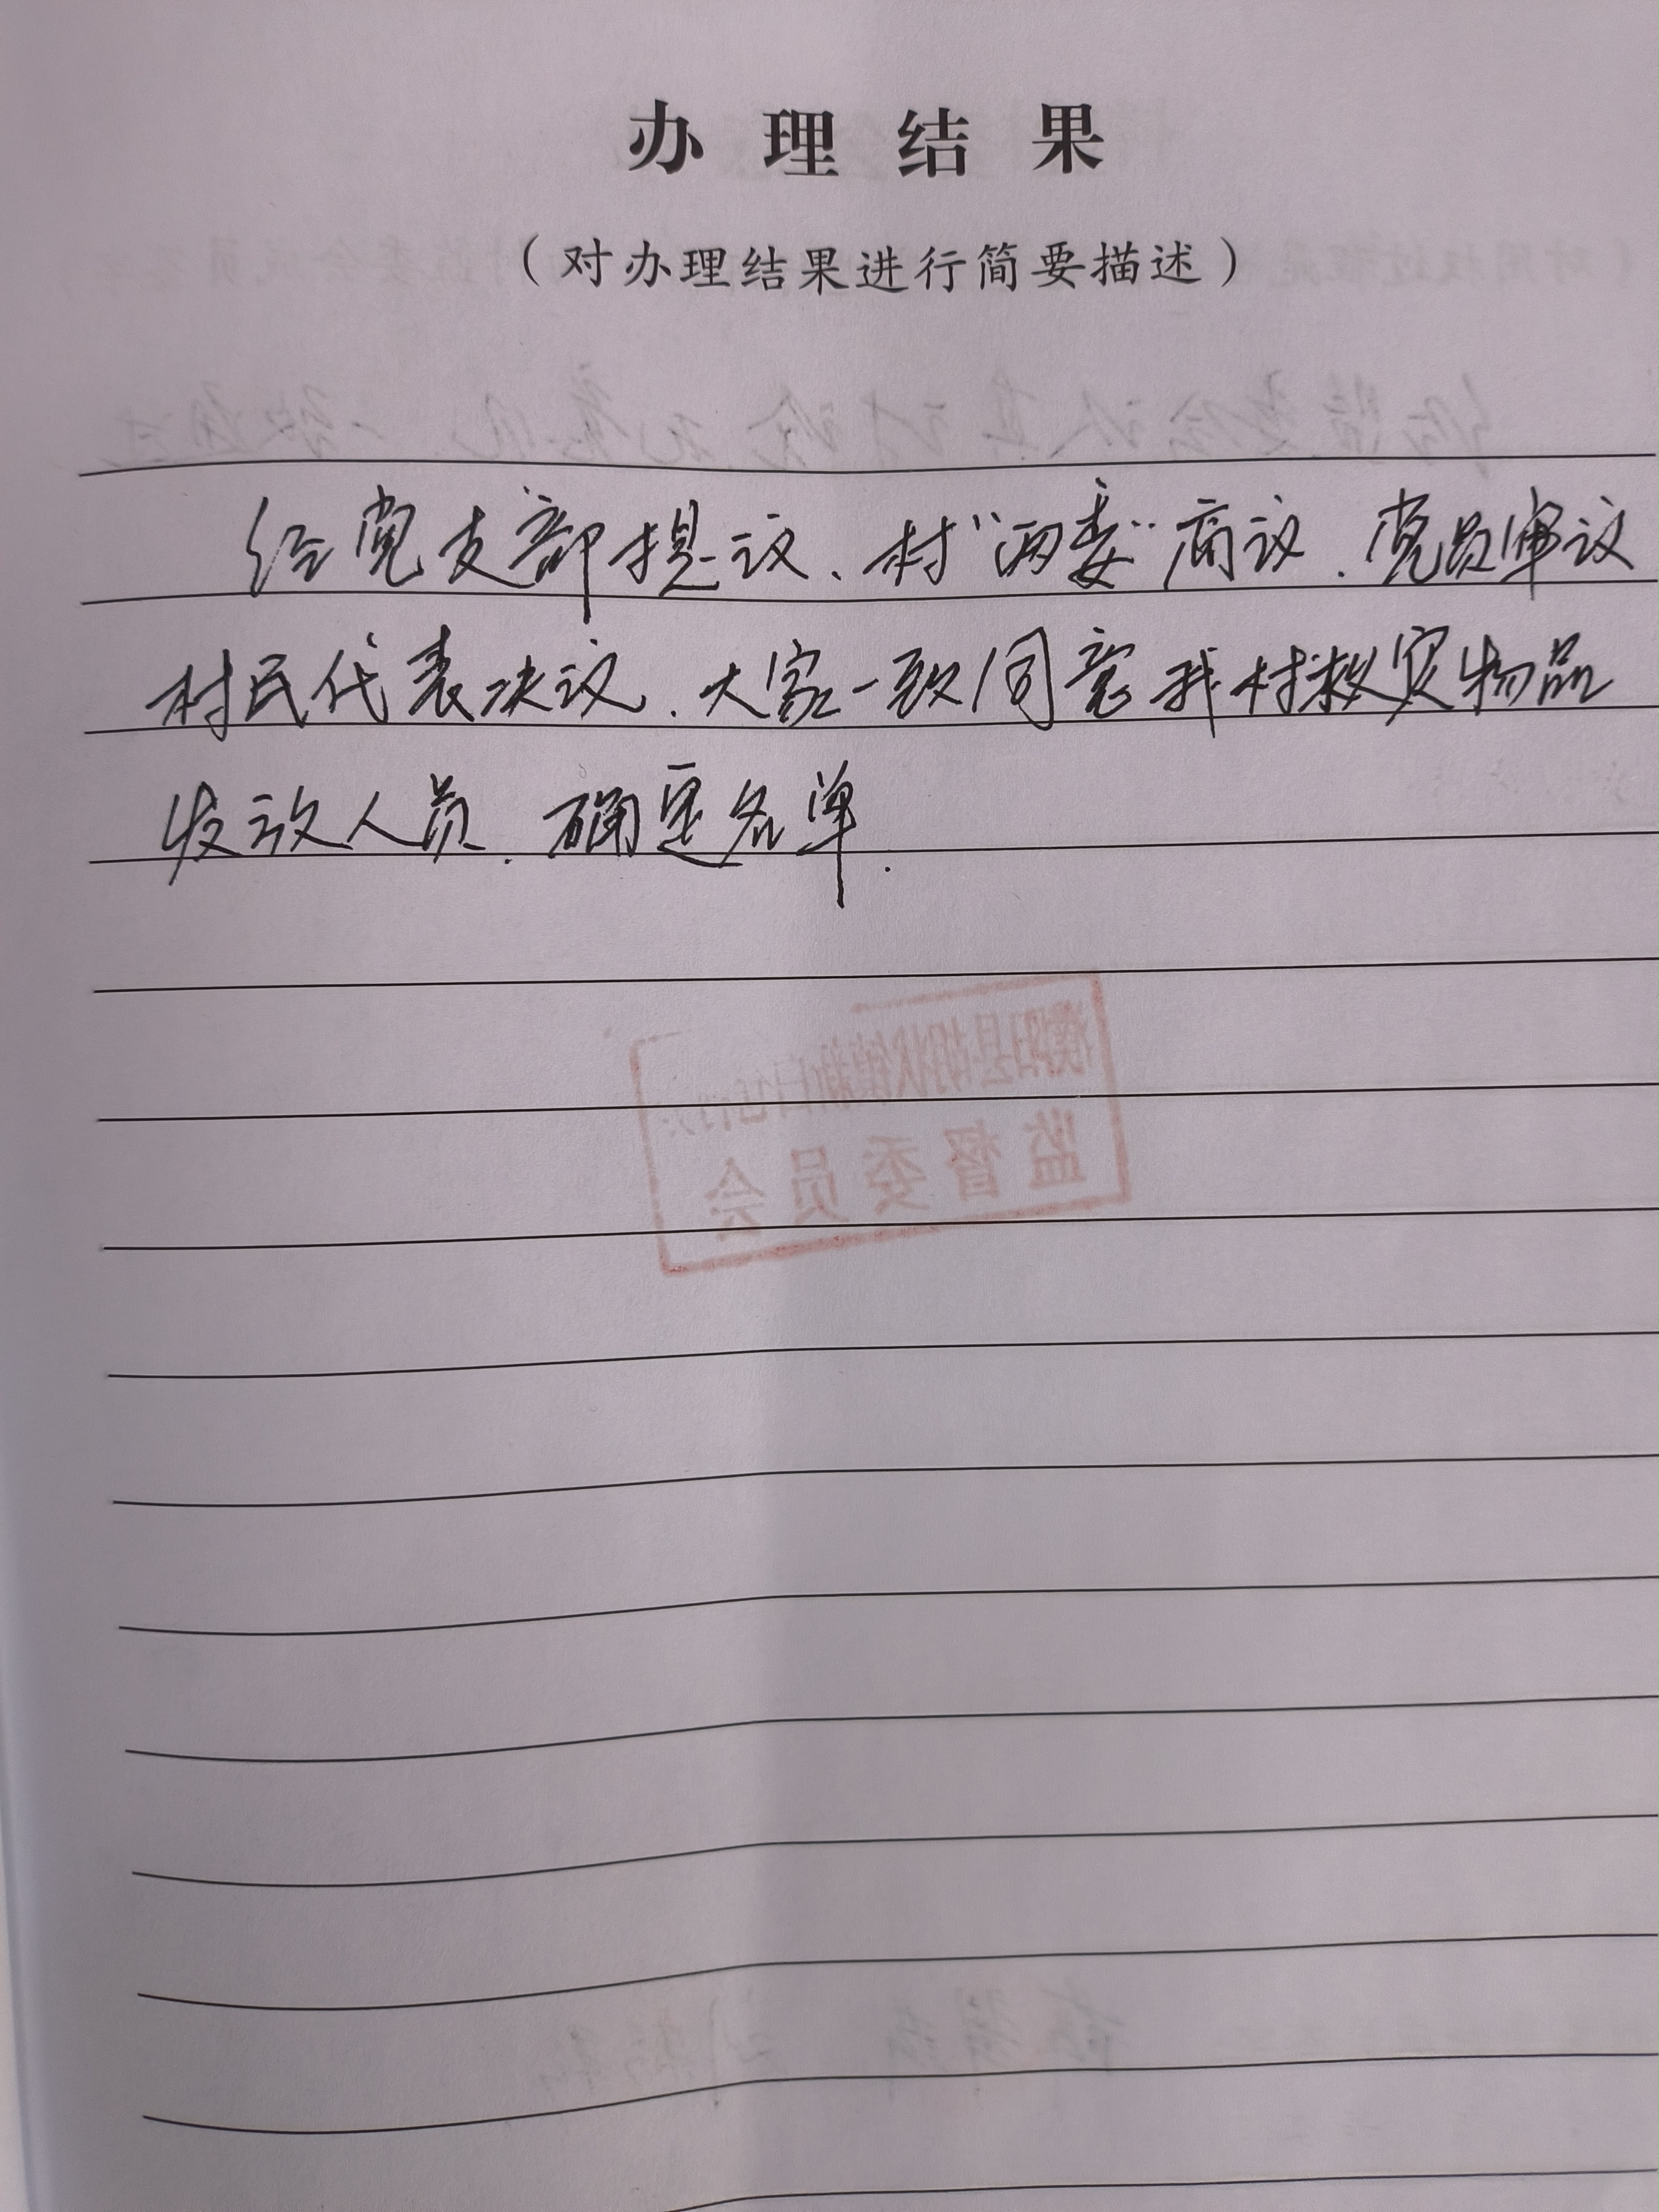 办理结果
（对办理结果进行简要描述）
经党支部提议、村“两委”商议、党员审议
村民代表决议、大家一致同意我村救灾物品
发放人员、确定名单.
监督委员会